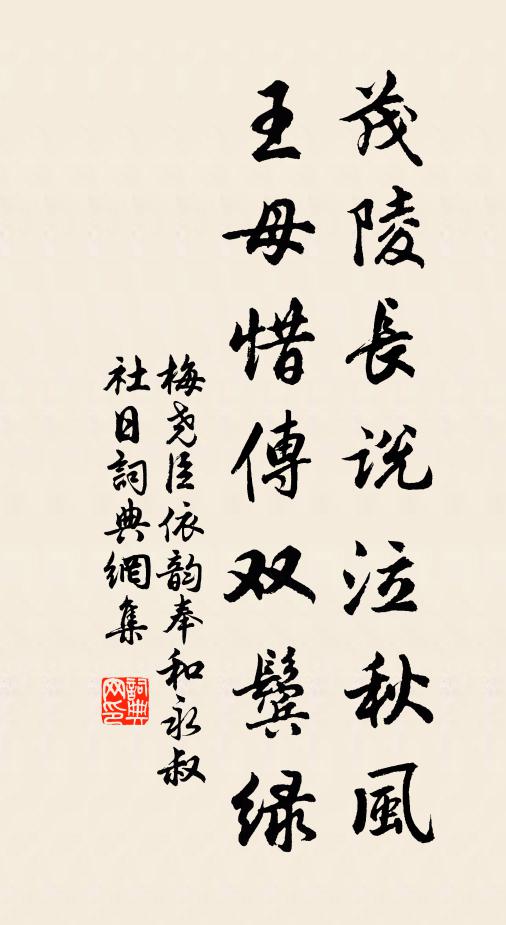 茂陵長説泣秋風
王母惜傳双鬓绿
梅尧臣依韵奉和永叔
社日詞典網集
詞典
网印